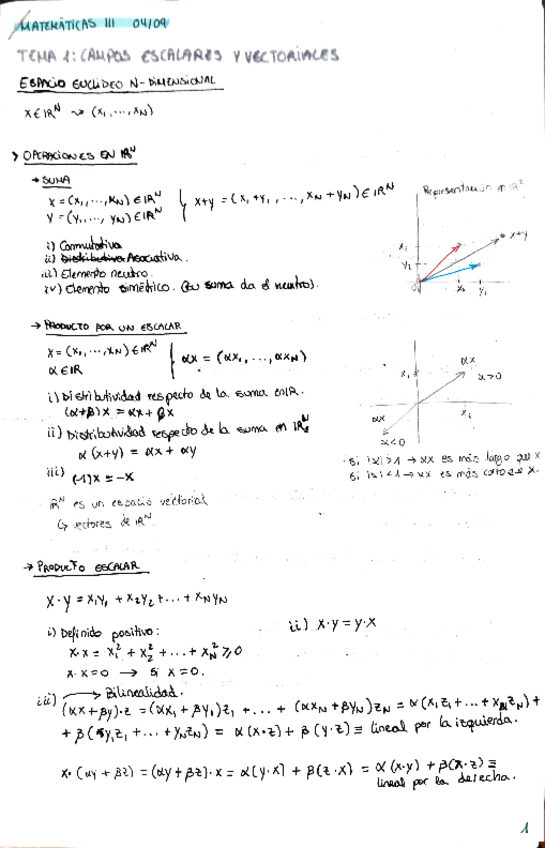 MATEMÁTICAS III 04/09
TEMA 1: CAMPOS ESCALARES Y VECTORIALES
ESPACIO EUCLÍDEO N-DIMENSIONAL
x ∈ ℝᴺ ⇝ (x₁, ..., xN)
> OPERACIONES EN ℝᴺ
→ SUMA
x = (x₁, ..., xN) ∈ ℝᴺ
y = (y₁, ..., yN) ∈ ℝᴺ
x+y = (x₁+y₁, ..., xN+yN) ∈ ℝᴺ
i) Conmutativa
ii) Distributiva Asociativa.
iii) Elemento neutro.
iv) Elemento simétrico. (Su suma da el neutro).
Representación en ℝ²
x+y
x₁
y₂
x₂ y₁
→ PRODUCTO POR UN ESCALAR
x = (x₁, ..., xN) ∈ ℝᴺ
α ∈ ℝ
αx = (αx₁, ..., αxN)
i) Distributividad respecto de la suma en ℝ.
(α+β)x = αx + βx
ii) Distributividad respecto de la suma en ℝᴺ
α(x+y) = αx + αy
iii) (-1)x = -x
ℝᴺ es un espacio vectorial
↳ vectores de ℝᴺ.
αx
α>0
x₁
x₂
αx
α<0
· Si |α|>1 → αx es más largo que x
Si |α|<1 → αx es más corto que x.
→ PRODUCTO ESCALAR
x·y = x₁y₁ + x₂y₂ + ... + xNyN
i) Definido positivo:
x·x = x₁² + x₂² + ... + xN² ≥ 0
x·x = 0 → si x = 0.
ii) x·y = y·x
iii) → Bilinealidad.
(αx+βy)·z = (αx₁+βy₁)z₁ + ... + (αxN+βyN)zN = α(x₁z₁+...+xNzN)+
+ β(y₁z₁+...+yNzN) = α(x·z) + β(y·z) ≡ lineal por la izquierda.
x·(αy+βz) = (αy+βz)·x = α(y·x) + β(z·x) = α(x·y) + β(x·z) ≡
lineal por la derecha.
1